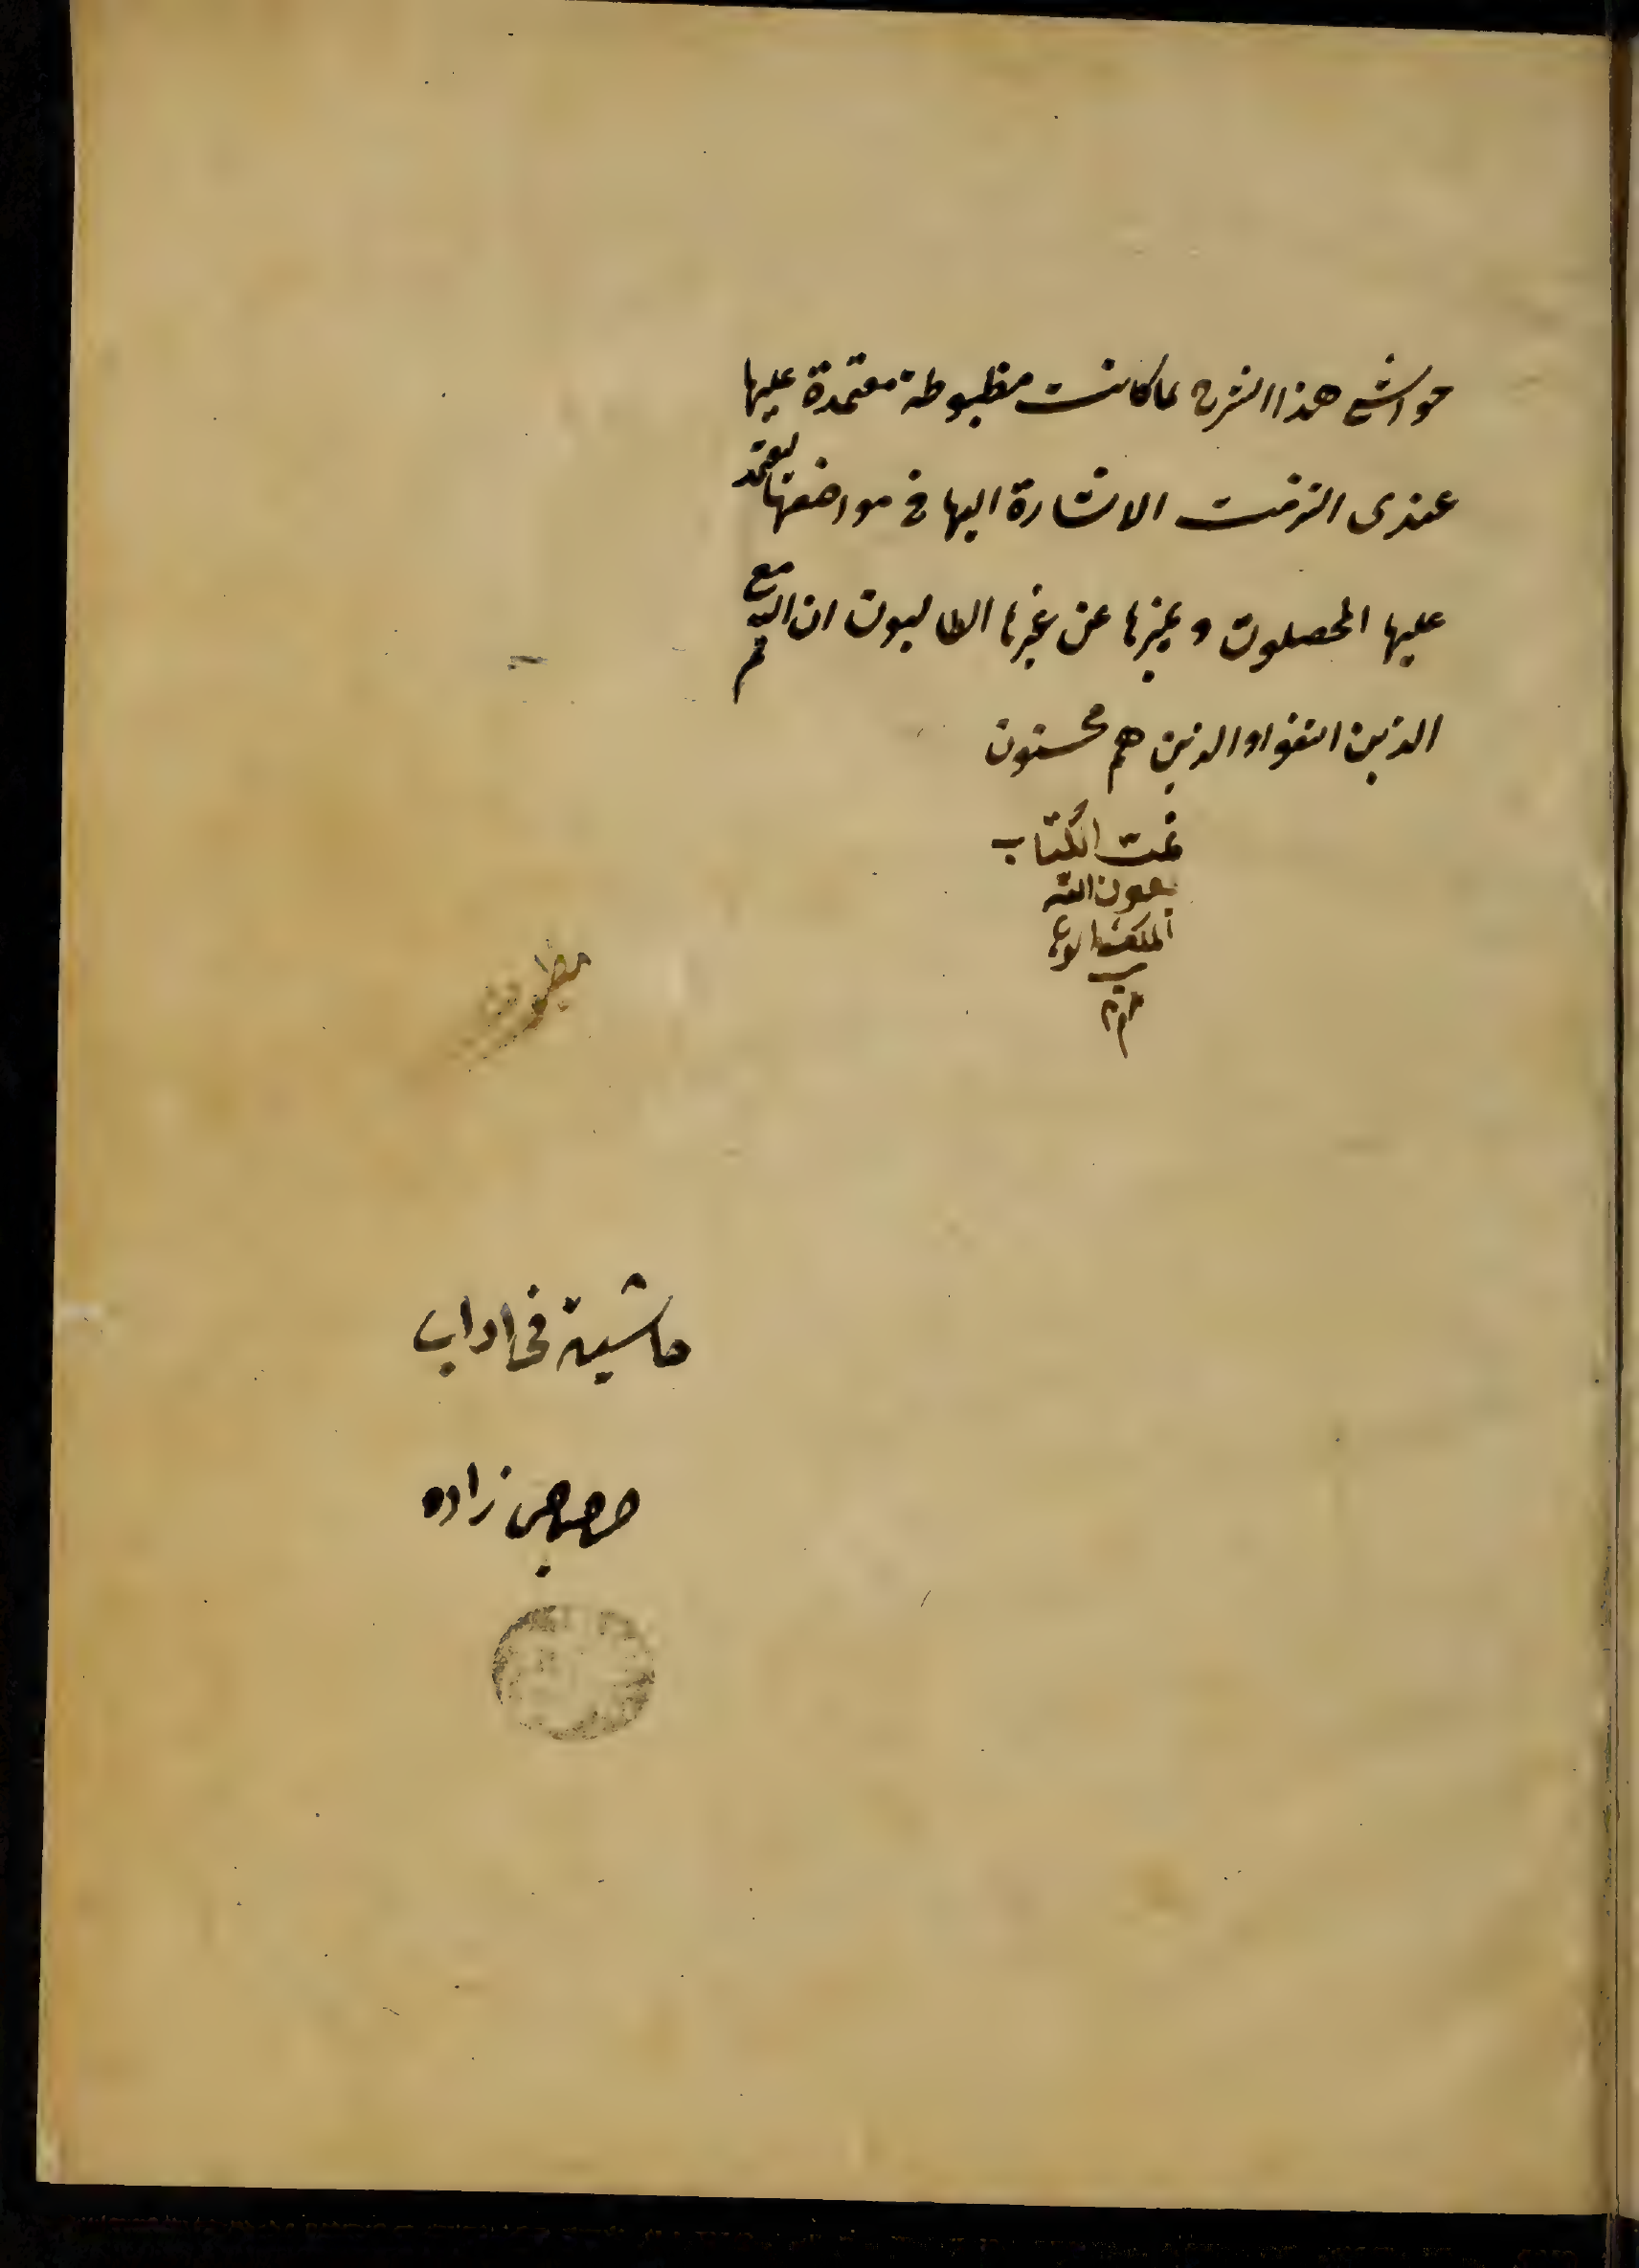 حواشى هذا الشرح لما كانت مظبوطة معتمدة عليها
عندى التزمت الاشارة اليها فى مواضعها ليعتمد
عليها المحصلون ويميزها عن غيرها الطالبون ان الله مع
الذين اتقوا والذين هم محسنون
تمت الكتاب
بعون الله
الملك الوها
ب
م
حاشية فى اداب
زاده